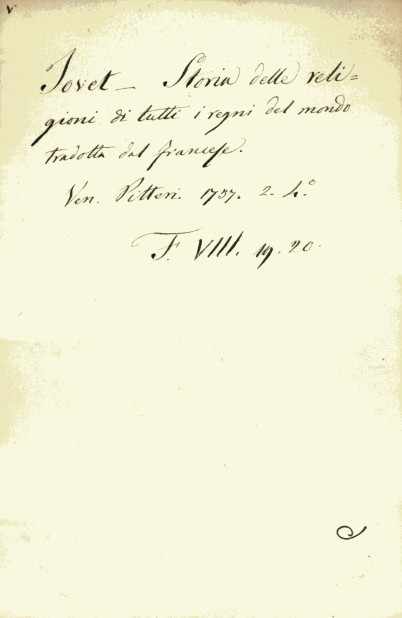 v
Jovet _ Storia delle reli=
gioni di tutti i regni del mondo
tradotta dal francese.
Ven. Pitteri. 1737. 2. 4.º
F. VIII. 19. 20.